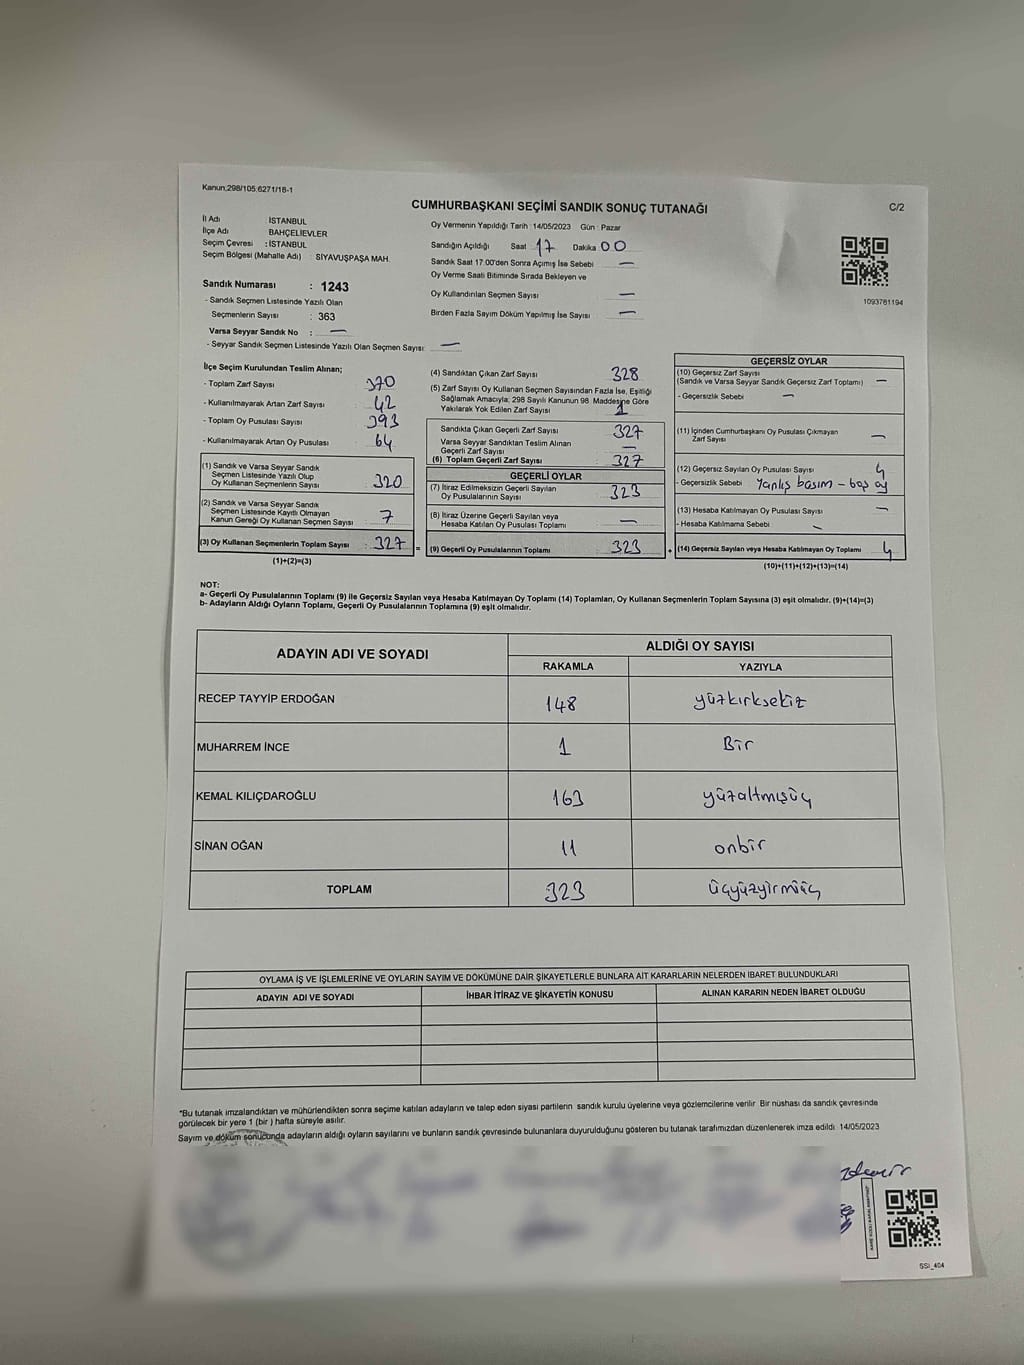 Kanun,298/105.6271/18-1
CUMHURBAŞKANI SEÇİMİ SANDIK SONUÇ TUTANAĞI
C/2
İl Adı : İSTANBUL
İlçe Adı : BAHÇELİEVLER
Seçim Çevresi : İSTANBUL
Seçim Bölgesi (Mahalle Adı) : SİYAVUŞPAŞA MAH.
Sandık Numarası : 1243
- Sandık Seçmen Listesinde Yazılı Olan
Seçmenlerin Sayısı : 363
Varsa Seyyar Sandık No : —
- Seyyar Sandık Seçmen Listesinde Yazılı Olan Seçmen Sayısı: —
Oy Vermenin Yapıldığı Tarih : 14/05/2023 Gün : Pazar
Sandığın Açıldığı Saat 17 Dakika 00
Sandık Saat 17.00'den Sonra Açımış İse Sebebi —
Oy Verme Saati Bitiminde Sırada Bekleyen ve
Oy Kullandırılan Seçmen Sayısı —
Birden Fazla Sayım Döküm Yapılmış İse Sayısı —
1093781194
İlçe Seçim Kurulundan Teslim Alınan;
- Toplam Zarf Sayısı 370
- Kullanılmayarak Artan Zarf Sayısı : 42
- Toplam Oy Pusulası Sayısı : 393
- Kullanılmayarak Artan Oy Pusulası : 64
(1) Sandık ve Varsa Seyyar Sandık
Seçmen Listesinde Yazılı Olup
Oy Kullanan Seçmenlerin Sayısı : 320
(2) Sandık ve Varsa Seyyar Sandık
Seçmen Listesinde Kayıtlı Olmayan
Kanun Gereği Oy Kullanan Seçmen Sayısı : 7
(3) Oy Kullanan Seçmenlerin Toplam Sayısı : 327 =
(1)+(2)=(3)
(4) Sandıktan Çıkan Zarf Sayısı 328
(5) Zarf Sayısı Oy Kullanan Seçmen Sayısından Fazla İse, Eşitliği
Sağlamak Amacıyla; 298 Sayılı Kanunun 98. Maddesine Göre
Yakılarak Yok Edilen Zarf Sayısı : 1
Sandıkta Çıkan Geçerli Zarf Sayısı : 327
Varsa Seyyar Sandıktan Teslim Alınan
Geçerli Zarf Sayısı : —
(6) Toplam Geçerli Zarf Sayısı : 327
GEÇERLİ OYLAR
(7) İtiraz Edilmeksizin Geçerli Sayılan
Oy Pusulalarının Sayısı : 323
(8) İtiraz Üzerine Geçerli Sayılan veya
Hesaba Katılan Oy Pusulası Toplamı : —
(9) Geçerli Oy Pusulalarının Toplamı : 323 +
GEÇERSİZ OYLAR
(10) Geçersiz Zarf Sayısı
(Sandık ve Varsa Seyyar Sandık Geçersiz Zarf Toplamı) : —
- Geçersizlik Sebebi : —
(11) İçinden Cumhurbaşkanı Oy Pusulası Çıkmayan
Zarf Sayısı : —
(12) Geçersiz Sayılan Oy Pusulası Sayısı : 4
- Geçersizlik Sebebi : Yanlış basım – boş oy
(13) Hesaba Katılmayan Oy Pusulası Sayısı : —
- Hesaba Katılmama Sebebi : —
(14) Geçersiz Sayılan veya Hesaba Katılmayan Oy Toplamı : 4
(10)+(11)+(12)+(13)=(14)
NOT:
a- Geçerli Oy Pusulalarının Toplamı (9) ile Geçersiz Sayılan veya Hesaba Katılmayan Oy Toplamı (14) Toplamları, Oy Kullanan Seçmenlerin Toplam Sayısına (3) eşit olmalıdır. (9)+(14)=(3)
b- Adayların Aldığı Oyların Toplamı, Geçerli Oy Pusulalarının Toplamına (9) eşit olmalıdır.
ADAYIN ADI VE SOYADI
ALDIĞI OY SAYISI
RAKAMLA YAZIYLA
RECEP TAYYİP ERDOĞAN 148 yüzkırksekiz
MUHARREM İNCE 1 Bir
KEMAL KILIÇDAROĞLU 163 yüzaltmışüç
SİNAN OĞAN 11 onbir
TOPLAM 323 üçyüzyirmiüç
OYLAMA İŞ VE İŞLEMLERİNE VE OYLARIN SAYIM VE DÖKÜMÜNE DAİR ŞİKAYETLERLE BUNLARA AİT KARARLARIN NELERDEN İBARET BULUNDUKLARI
ADAYIN ADI VE SOYADI İHBAR İTİRAZ VE ŞİKAYETİN KONUSU ALINAN KARARIN NEDEN İBARET OLDUĞU
*Bu tutanak imzalandıktan ve mühürlendikten sonra seçime katılan adayların ve talep eden siyasi partilerin sandık kurulu üyelerine veya gözlemcilerine verilir. Bir nüshası da sandık çevresinde
görülecek bir yere 1 (bir ) hafta süreyle asılır.
Sayım ve döküm sonucunda adayların aldığı oyların sayılarını ve bunların sandık çevresinde bulunanlara duyurulduğunu gösteren bu tutanak tarafımızdan düzenlenerek imza edildi. 14/05/2023
SSI_404